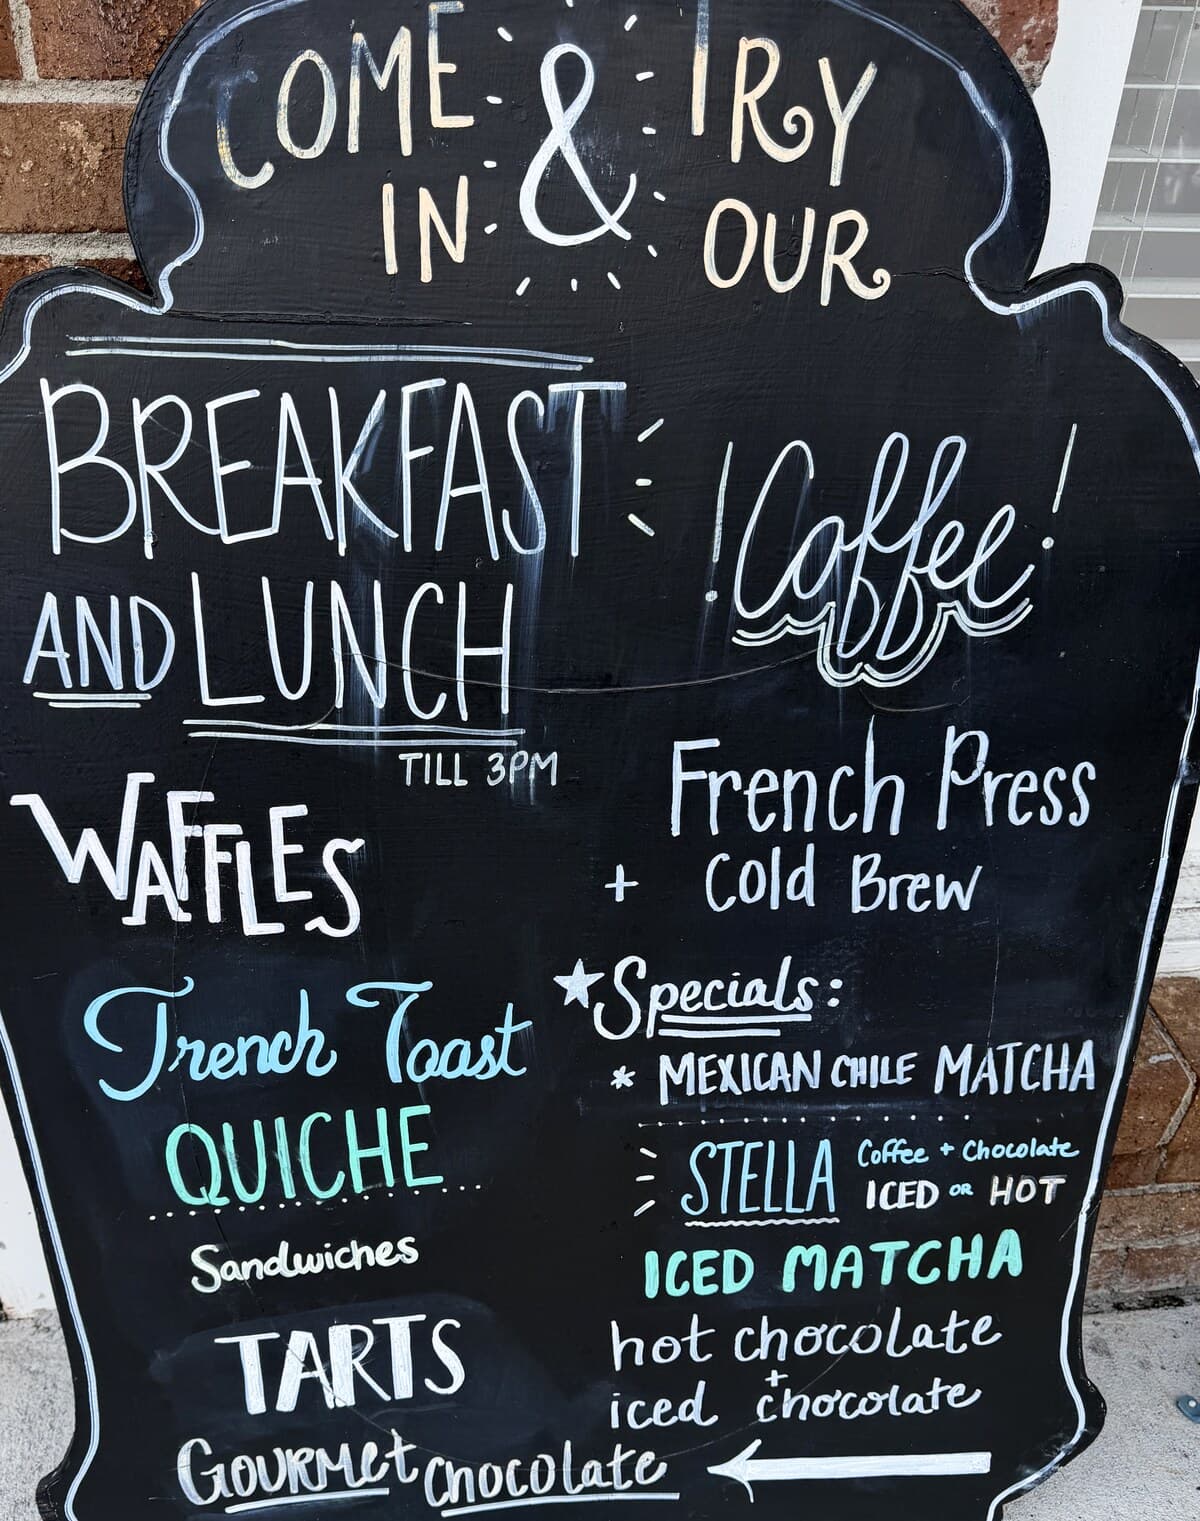 COME & TRY
IN OUR
BREAKFAST
AND LUNCH
TILL 3PM
WAFFLES
French Toast
QUICHE
Sandwiches
TARTS
Gourmet Chocolate
! Coffee !
French Press
+ Cold Brew
★ Specials:
* MEXICAN CHILE MATCHA
STELLA Coffee + Chocolate
ICED OR HOT
ICED MATCHA
hot chocolate
+
iced chocolate